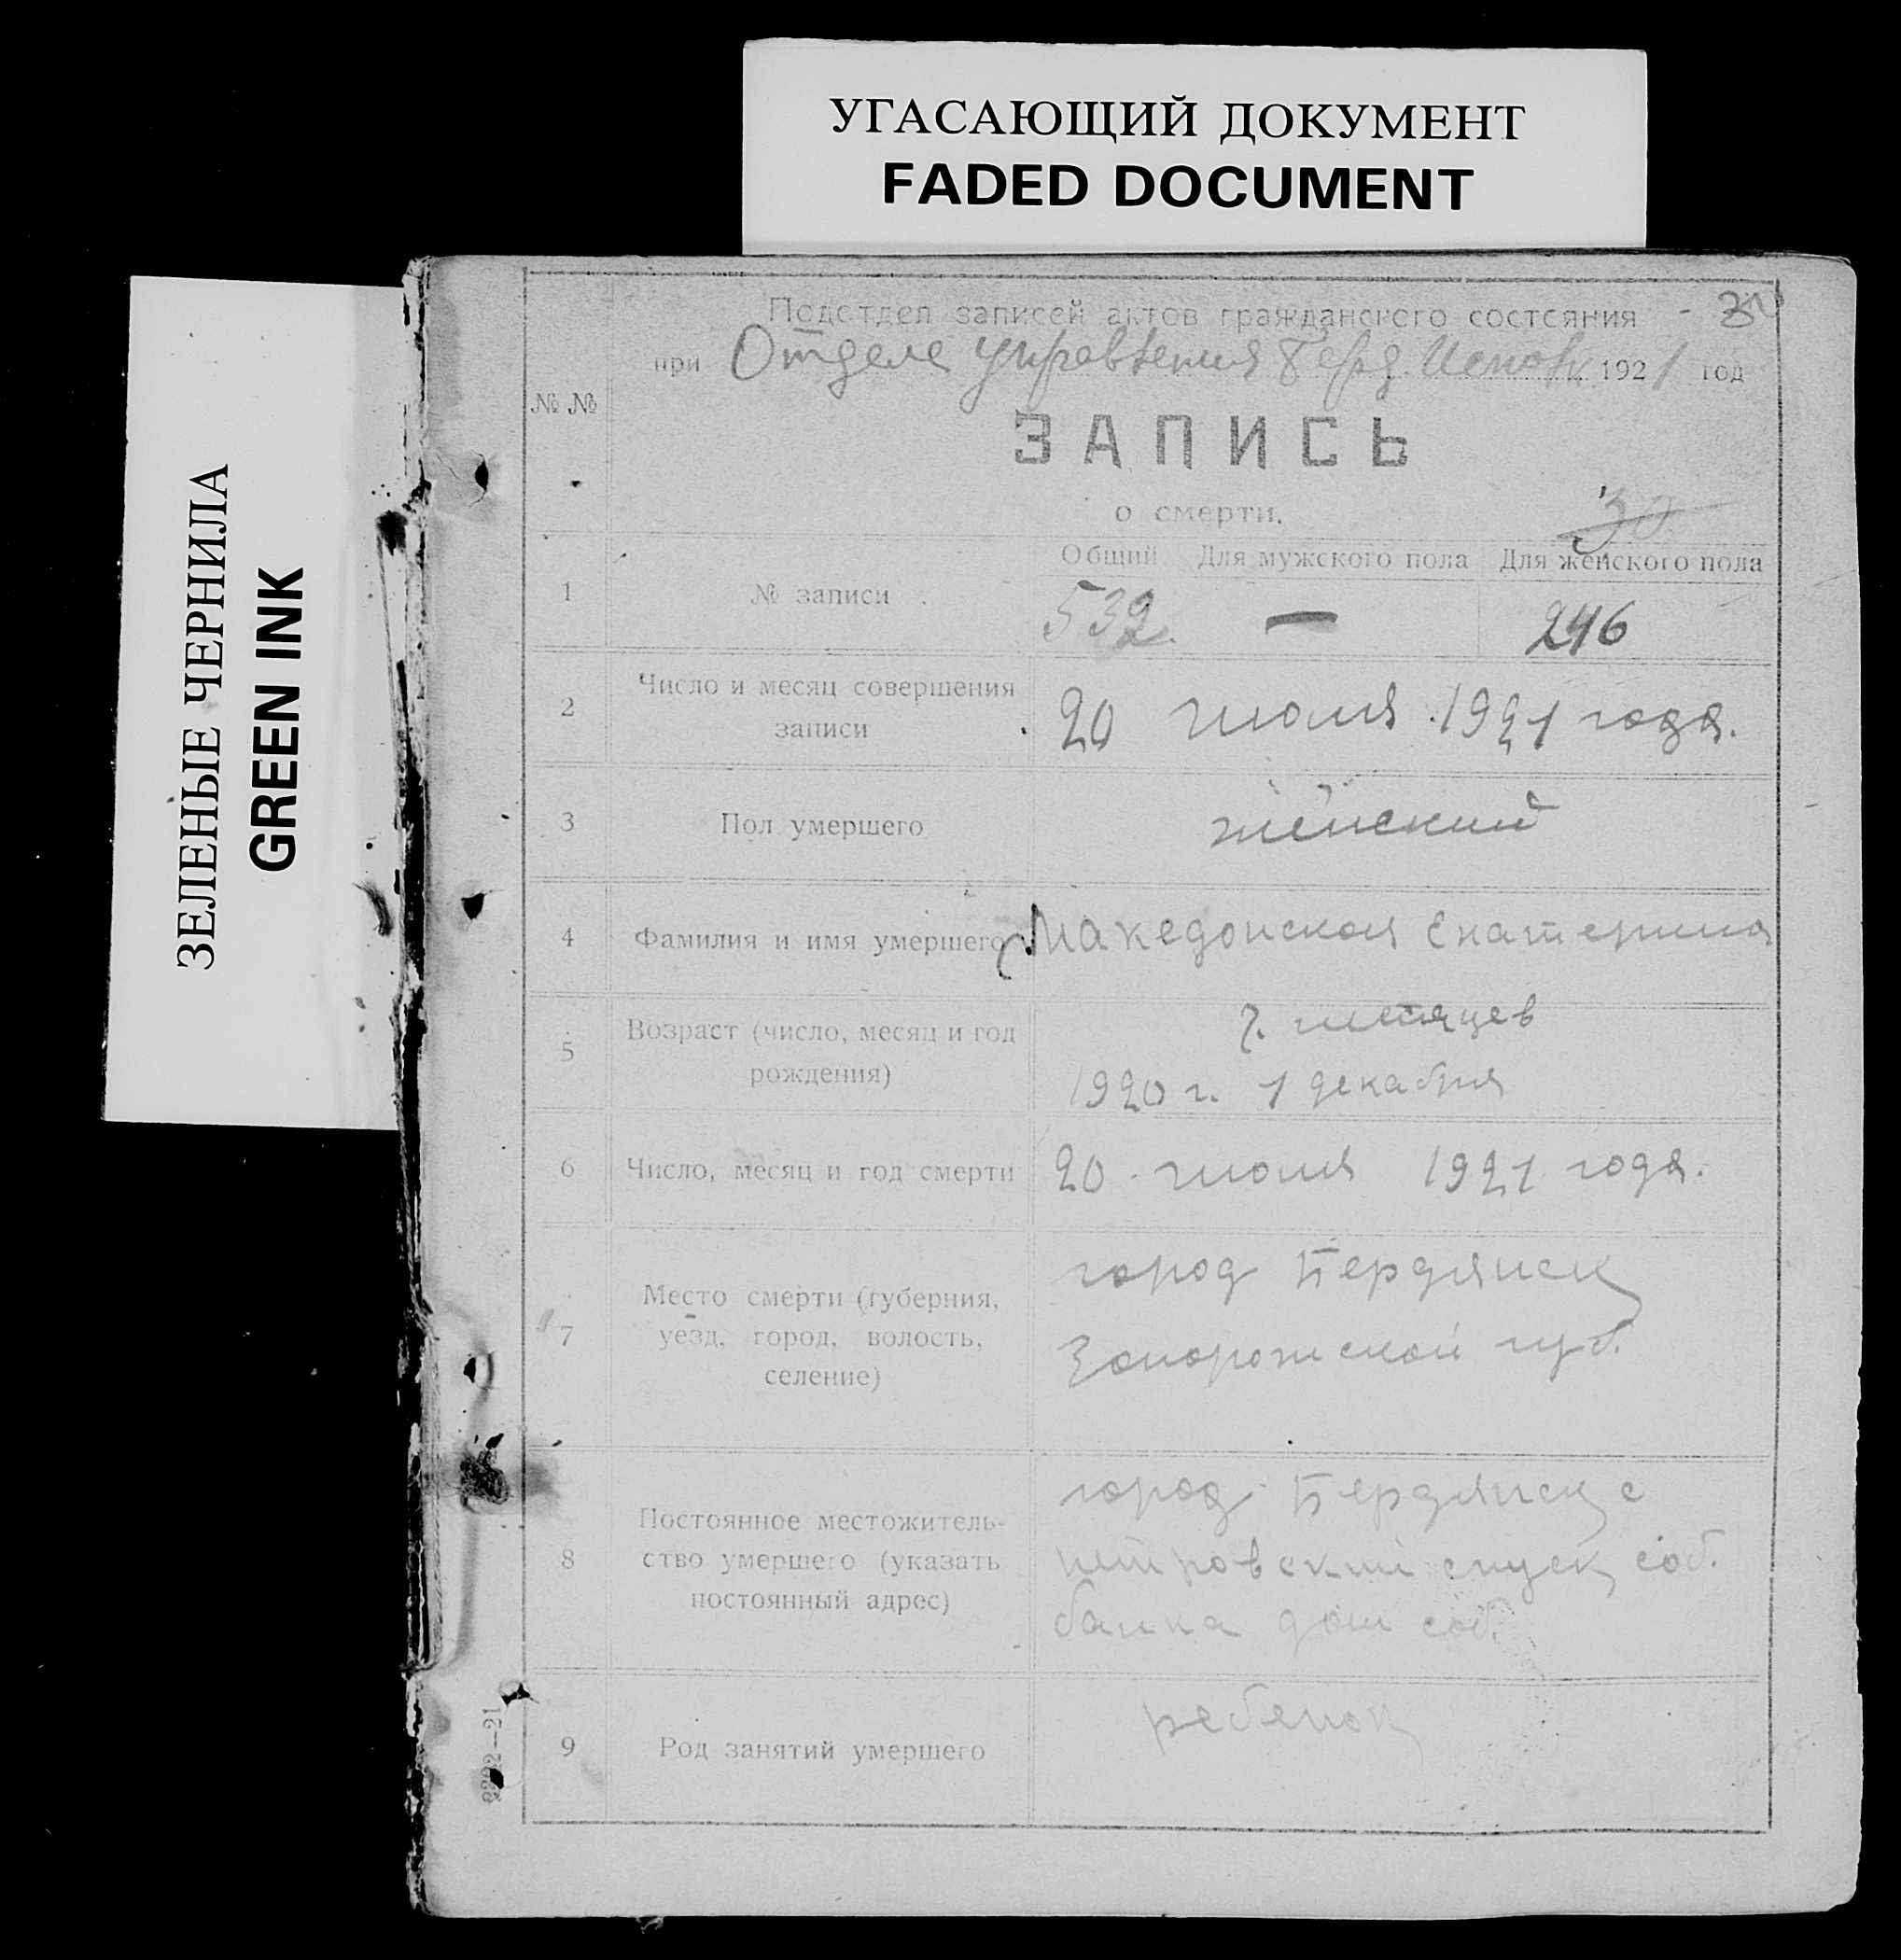 УГАСАЮЩИЙ ДОКУМЕНТ
FADED DOCUMENT
ЗЕЛЕНЫЕ ЧЕРНИЛА
GREEN INK
Подотдел записей актов гражданского состояния - 30
при Отделе Управления Берд. 1921 год
№ №
ЗАПИСЬ
о смерти.
30
Общий Для мужского пола Для женского пола
1 № записи 532. — 246
2 Число и месяц совершения записи 20 июля 1921 года.
3 Пол умершего женский
4 Фамилия и имя умершего Македонская Екатерина
5 Возраст (число, месяц и год рождения) 7. месяцев
1920 г. 1 декабря
6 Число, месяц и год смерти 20 июля 1921 года.
7 Место смерти (губерния, уезд, город, волость, селение) город Бердянск
Запорожской губ.
8 Постоянное местожитель-
ство умершего (указать
постоянный адрес)
город Бердянск
спуск соб.
банка дом соб.
9 Род занятий умершего ребенок